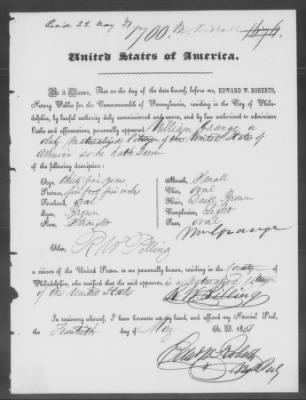 Rec'd 22 May
1700.
United States of America.
Be it Known, That on the day of the date hereof, before me, EDWARD W. ROBERTS,
Notary Public for the Commonwealth of Pennsylvania, residing in the City of Phila-
delphia, by lawful authority duly commissioned and sworn, and by law authorized to administer
Oaths and affirmations, personally appeared William Grange a
duly naturalized Citizen of the United States of
America
of the following description:
Age, thirty five years
Stature, five feet five inches
Forehead, Oval
Eyes, Brown
Nose, Straight
Mouth, Small
Chin, Oval
Hair, Dark Brown
Complexion, Light
Face, Oval
Wm Grange
Also, R. W. Pilling
a citizen of the United States, to me personally known, residing in the County of
Philadelphia, who testified that the said appearer, is a naturalized Citizen
of the United States
R. W. Pilling
In testimony whereof, I have hereunto set my hand, and affixed my Notarial Seal, the
Twentieth day of May A. D. 18
Edw. W. Roberts
Not Pub